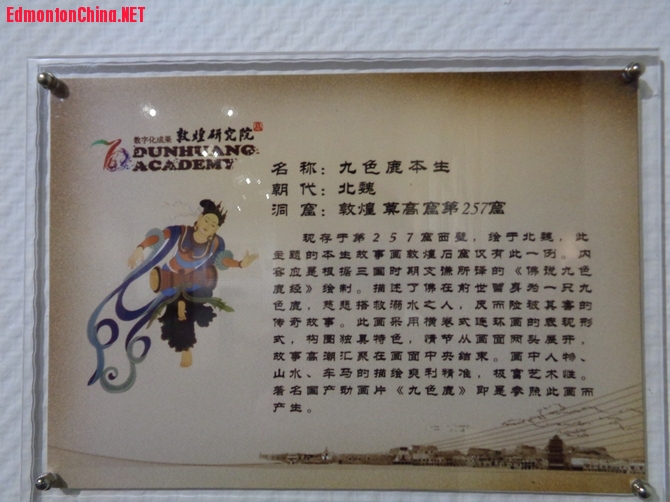 EdmontonChina.NET
数字化成果 敦煌研究院
70 DUNHUANG ACADEMY
名 称：九色鹿本生
朝 代：北魏
洞 窟：敦煌莫高窟第257窟
现存于第257窟西壁，绘于北魏，此
主题的本生故事画敦煌石窟仅有此一例。内
容应是根据三国时期支谦所译的《佛说九色
鹿经》绘制。描述了佛在前世曾身为一只九
色鹿，慈悲搭救溺水之人，反而险被其害的
传奇故事。此画采用横卷式连环画的表现形
式，构图独具特色，情节从画面两头展开，
故事高潮汇聚在画面中央结束。画中人物、
山水、车马的描绘爽利精准，极富艺术性。
著名国产动画片《九色鹿》即是参照此画而
产生。